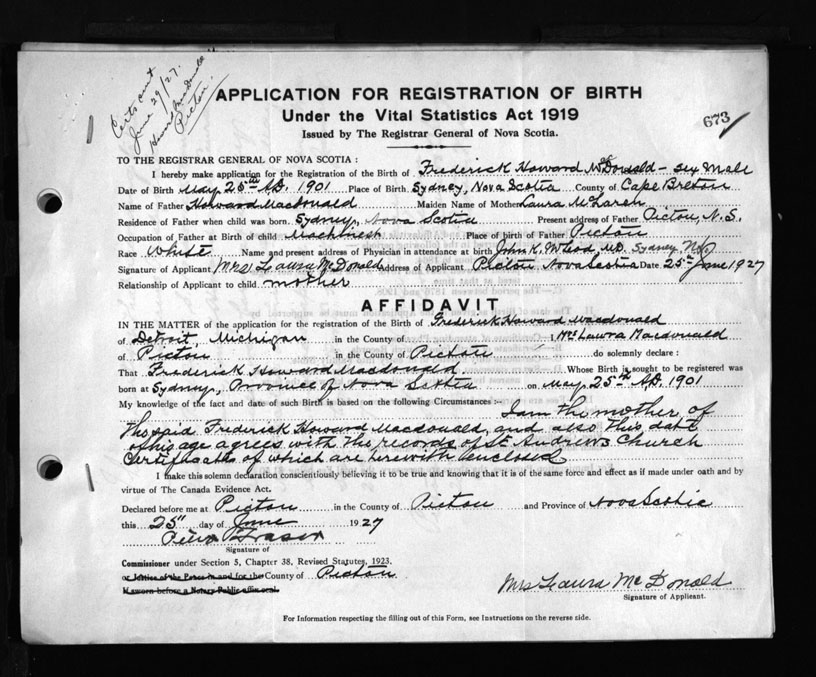 Certs out
June 29/27.
Pictou.
APPLICATION FOR REGISTRATION OF BIRTH
Under the Vital Statistics Act 1919
Issued by The Registrar General of Nova Scotia.
673
TO THE REGISTRAR GENERAL OF NOVA SCOTIA :
I hereby make application for the Registration of the Birth of Frederick Howard McDonald - sex Male
Date of Birth May 25th A.D. 1901 Place of Birth Sydney, Nova Scotia County of Cape Breton
Name of Father Howard Macdonald Maiden Name of Mother Laura
Residence of Father when child was born Sydney, Nova Scotia Present address of Father Pictou, N.S.
Occupation of Father at Birth of child Machinist Place of birth of Father Pictou
Race White Name and present address of Physician in attendance at birth John K. McLeod, M.D. Sydney, N.S.
Signature of Applicant Mrs Laura McDonald Address of Applicant Pictou Nova Scotia Date 25th June 1927
Relationship of Applicant to child mother
AFFIDAVIT
IN THE MATTER of the application for the registration of the Birth of Frederick Howard Macdonald
of Detroit, Michigan in the County of : Mrs Laura Macdonald
of Pictou in the County of Pictou do solemnly declare :
That Frederick Howard Macdonald. Whose Birth is sought to be registered was
born at Sydney, Province of Nova Scotia on May 25th A.D. 1901
My knowledge of the fact and date of such Birth is based on the following Circumstances :- I am the mother of
the said Frederick Howard Macdonald, and also this date
of his age agrees with the records of St. Andrews Church
Certificates of which are herewith enclosed
I make this solemn declaration conscientiously believing it to be true and knowing that it is of the same force and effect as if made under oath and by
virtue of The Canada Evidence Act.
Declared before me at Pictou in the County of Pictou and Province of Nova Scotia
this 25" day of June 1927
Fraser
Signature of
Commissioner under Section 5, Chapter 38, Revised Statutes, 1923.
or Justice of the Peace in and for the County of Pictou
If sworn before a Notary Public affix seal.
Mrs Laura McDonald
Signature of Applicant.
For Information respecting the filling out of this Form, see Instructions on the reverse side.